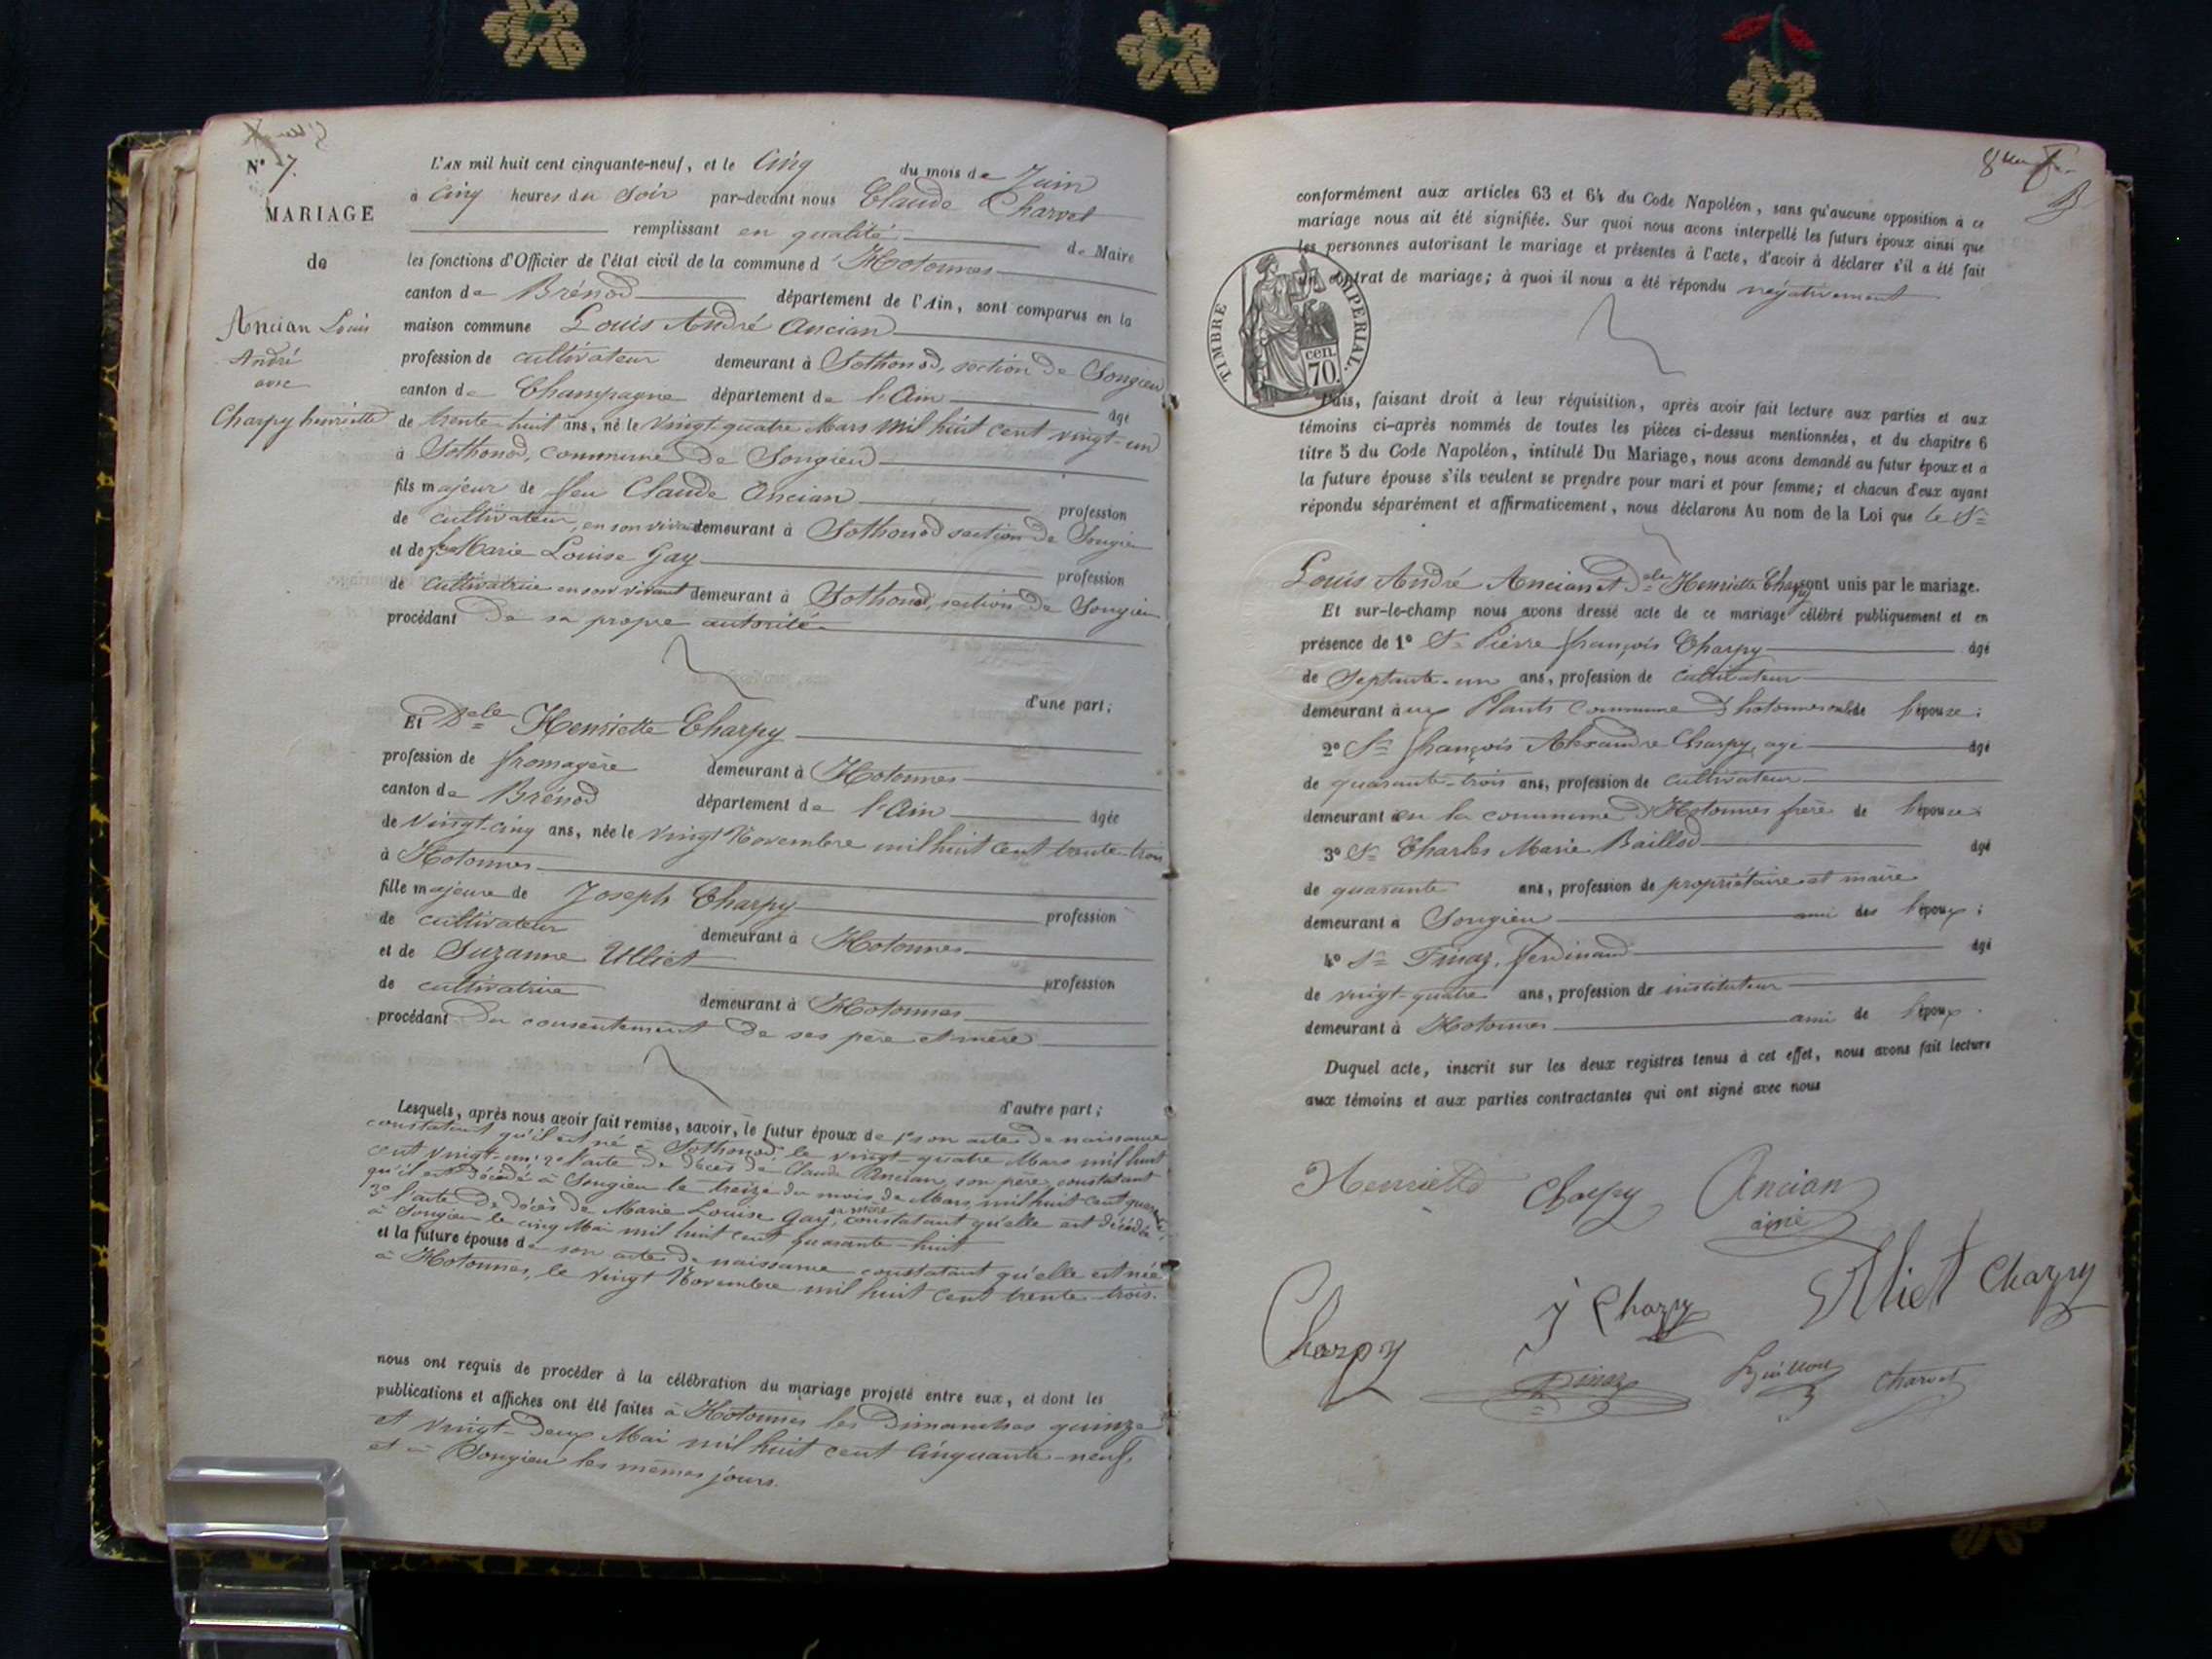 N° 7.
MARIAGE
de
Ancian Louis
André
avec
Charpy henriette
L'AN mil huit cent cinquante-neuf, et le Cinq du mois de Juin
à cinq heures du soir par-devant nous Claude Charvet
remplissant en qualité de Maire
les fonctions d'Officier de l'état civil de la commune d'Hotonnes
canton de Brénod département de l'Ain, sont comparus en la
maison commune Louis André Ancian
profession de cultivateur demeurant à Sothonod, section de Songieu
canton de Champagne département de l'Ain âgé
de trente huit ans, né le Vingt-quatre Mars mil huit cent vingt-un
à Sothonod, commune de Songieu
fils majeur de feu Claude Ancian profession
de cultivateur, en son vivant demeurant à Sothonod section de Songieu
et de feu Marie Louise Gay profession
de cultivatrice en son vivant demeurant à Sothonod, section de Songieu
procédant de sa propre autorité
d'une part;
Et Delle Henriette Charpy
profession de fromagère demeurant à Hotonnes
canton de Brénod département de l'Ain âgée
de vingt-cinq ans, née le vingt Novembre mil huit cent trente-trois
à Hotonnes
fille majeure de Joseph Charpy profession
de cultivateur demeurant à Hotonnes
et de Suzanne Ulliet profession
de cultivatrice demeurant à Hotonnes
procédant du consentement de ses père et mère
d'autre part;
Lesquels, après nous avoir fait remise, savoir, le futur époux de 1° son acte de naissance
constatant qu'il est né à Sothonod, le vingt-quatre Mars mil huit
cent vingt-un; 2° l'acte de décès de Claude Ancian, son père, constatant
qu'il est décédé à Songieu le treize du mois de Mars, mil huit cent quarante,
3° l'acte de décès de Marie Louise Gay, sa mère constatant qu'elle est décédée
à Songieu le cinq Mai mil huit cent quarante-huit
et la future épouse de son acte de naissance constatant qu'elle est née
à Hotonnes, le vingt Novembre mil huit cent trente-trois.
nous ont requis de procéder à la célébration du mariage projeté entre eux, et dont les
publications et affiches ont été faites à Hotonnes les Dimanches quinze
et vingt-deux Mai mil huit cent cinquante-neuf,
et à Songieu les mêmes jours.
conformément aux articles 63 et 64 du Code Napoléon, sans qu'aucune opposition à ce
mariage nous ait été signifiée. Sur quoi nous avons interpellé les futurs époux ainsi que
les personnes autorisant le mariage et présentes à l'acte, d'avoir à déclarer s'il a été fait
un contrat de mariage; à quoi il nous a été répondu négativement
TIMBRE IMPERIAL.
cen.
70.
Puis, faisant droit à leur réquisition, après avoir fait lecture aux parties et aux
témoins ci-après nommés de toutes les pièces ci-dessus mentionnées, et du chapitre 6
titre 5 du Code Napoléon, intitulé Du Mariage, nous avons demandé au futur époux et a
la future épouse s'ils veulent se prendre pour mari et pour femme; et chacun d'eux ayant
répondu séparément et affirmativement, nous déclarons Au nom de la Loi que le Sr
Louis André Ancian et Delle Henriette Charpy sont unis par le mariage.
Et sur-le-champ nous avons dressé acte de ce mariage célébré publiquement et en
présence de 1° Sr Pierre françois Charpy âgé
de Septante-un ans, profession de cultivateur
demeurant aux Plants commune d'hotonnes oncle de l'épouse;
2° Sr françois Alexandre Charpy, agé âgé
de quarante-trois ans, profession de cultivateur
demeurant en la commune d'Hotonnes frère de l'épouse
3° Sr Charles Marie Baillod âgé
de quarante ans, profession de propriétaire et maire
demeurant à Songieu ami des l'époux;
4° Sr Finaz, ferdinand âgé
de vingt-quatre ans, profession de instituteur
demeurant à Hotonnes ami de l'époux.
Duquel acte, inscrit sur les deux registres tenus à cet effet, nous avons fait lecture
aux témoins et aux parties contractantes qui ont signé avec nous
Henriette Charpy Ancian
ainé
Charpy J Charpy Ulliet Charpy
Finaz Charvet